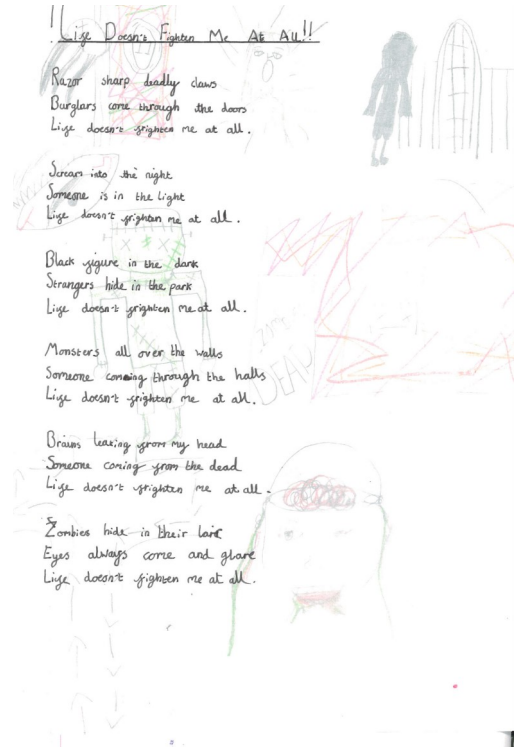 !!Life Doesn't Fighten Me At All!!
Razor sharp deadly claws
Burglars come through the doors
Life doesn't frighten me at all.
Scream into the night
Someone is in the Light
Life doesn't frighten me at all.
Black figure in the dark
Strangers hide in the park
Life doesn't frighten me at all.
Monsters all over the walls
Someone coming through the halls
Life doesn't frighten me at all.
Brains leaking from my head
Someone coming from the dead
Life doesn't frighten me at all.
Zombies hide in their lair
Eyes always come and glare
Life doesn't frighten me at all.
DEAD